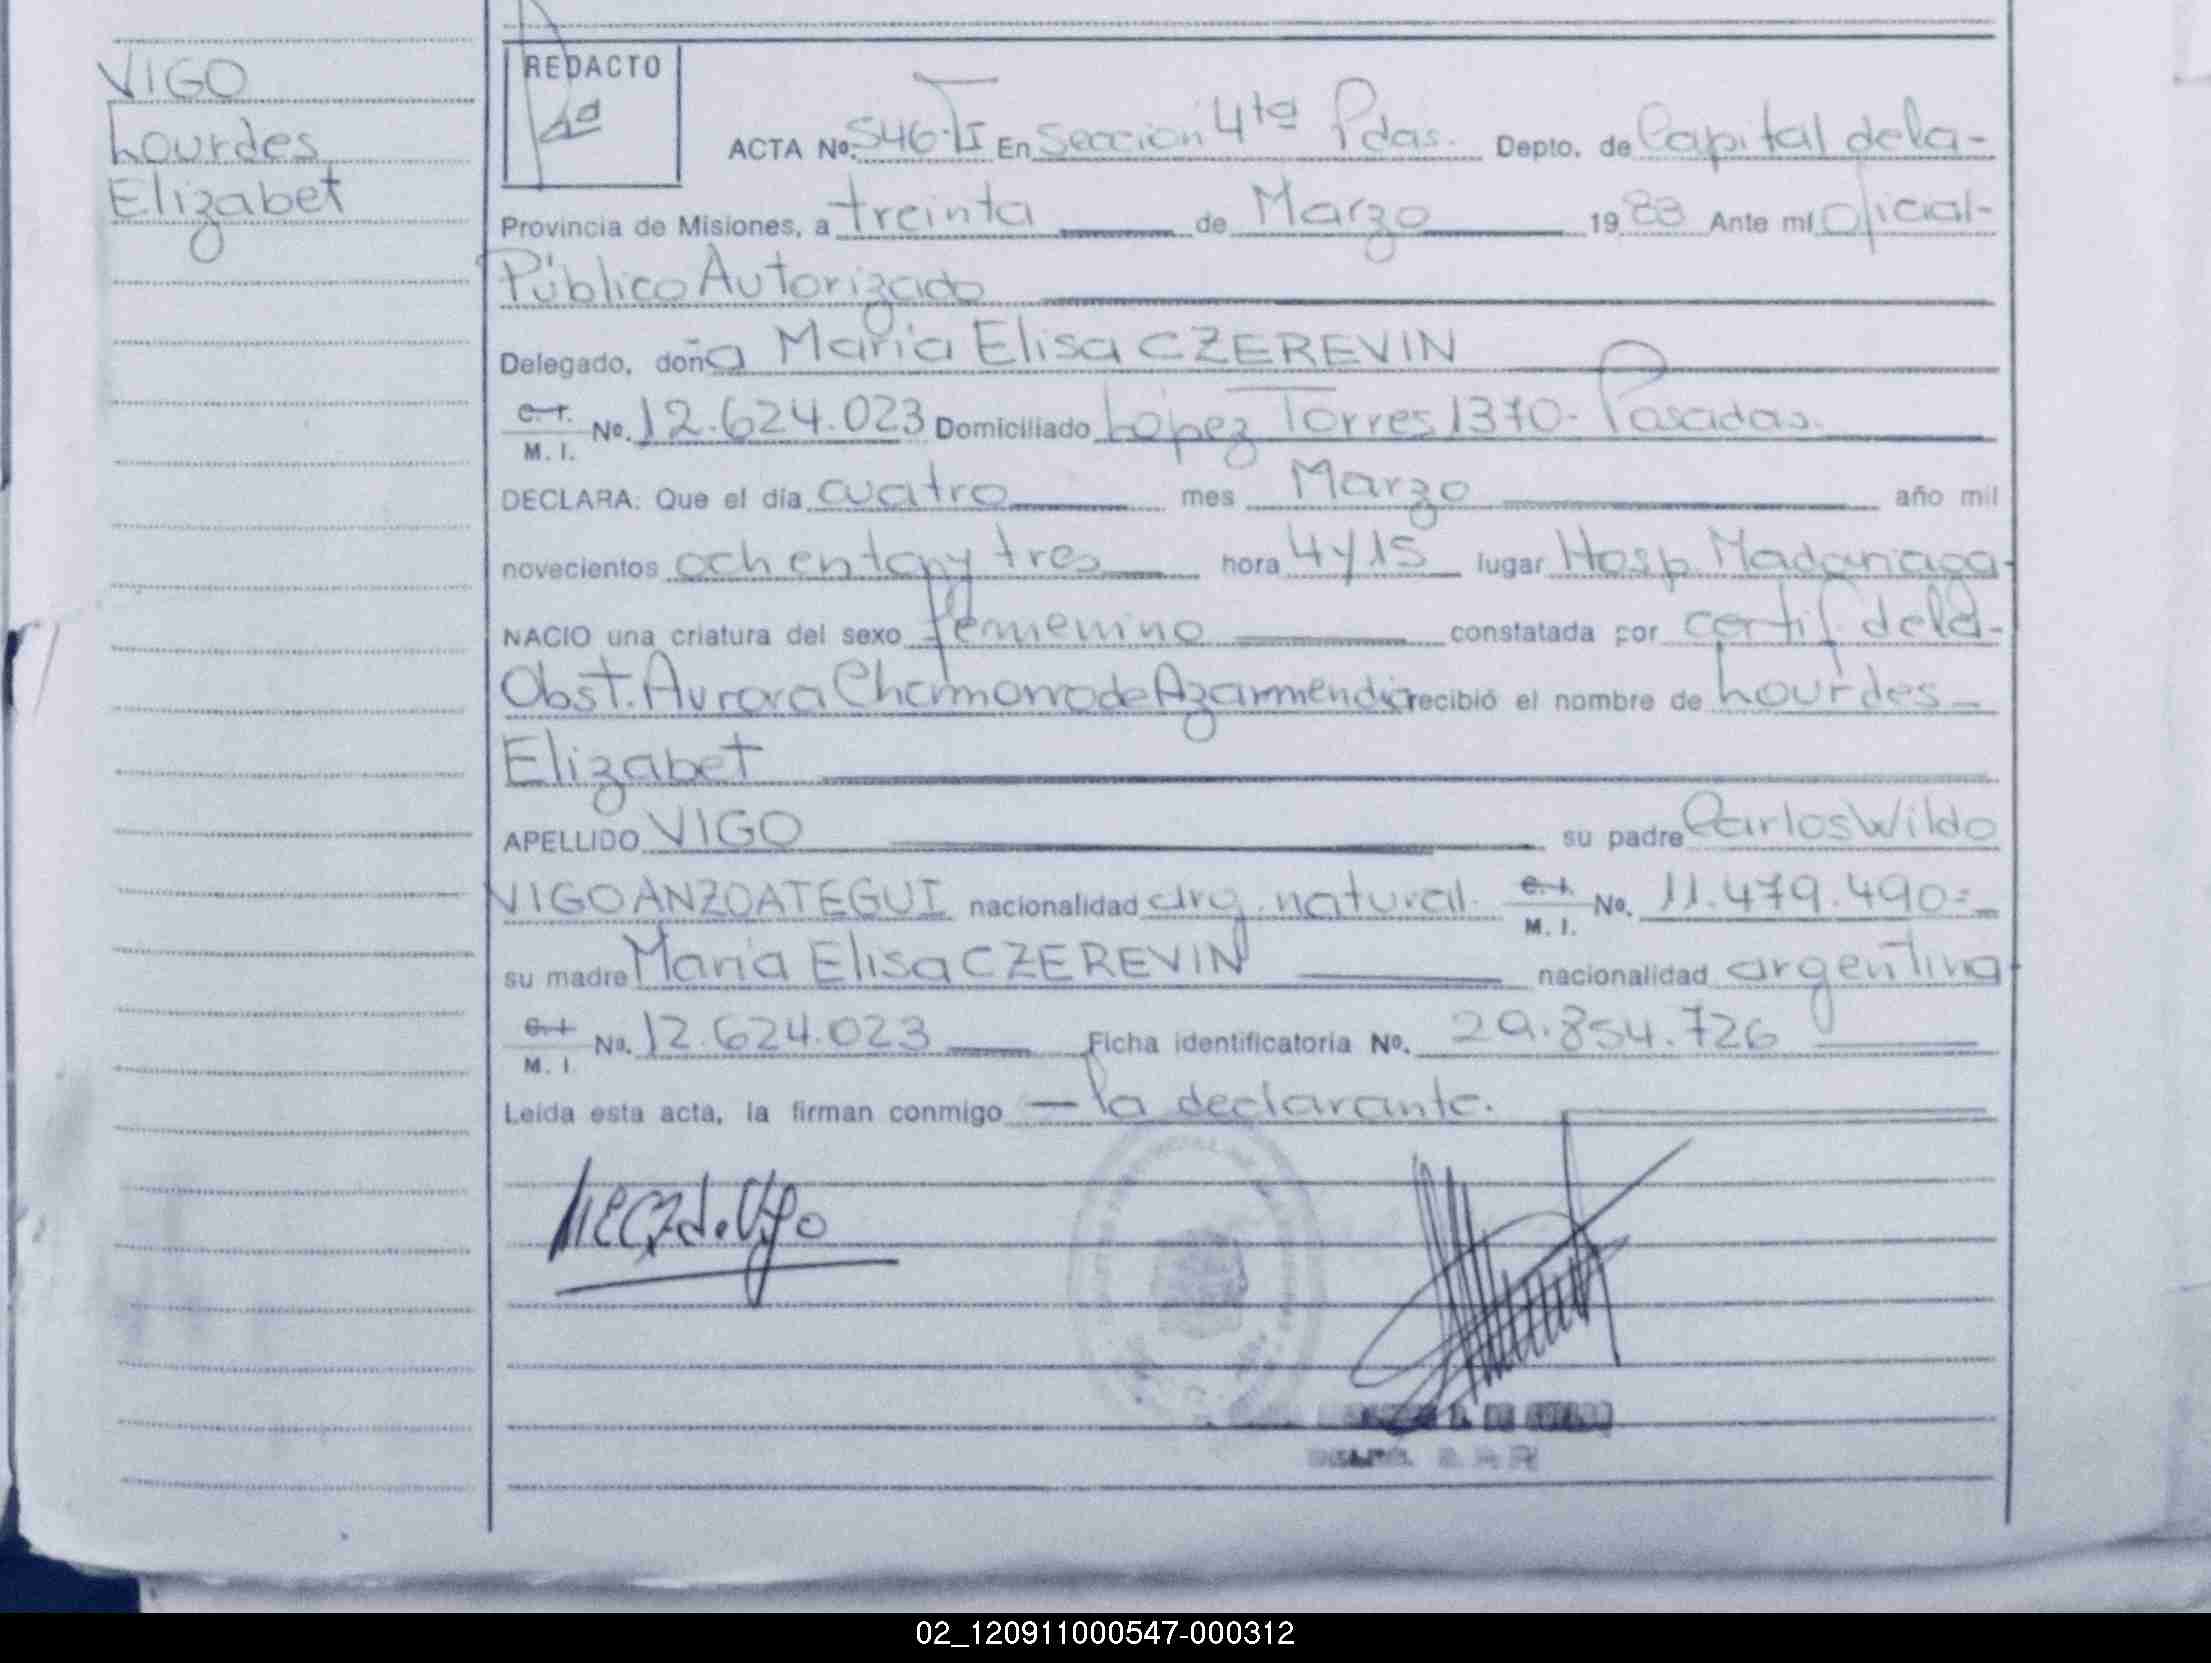 VIGO
Lourdes
Elizabet
REDACTO
ACTA Nº. 546-TI En Sección 4ta Pdas. Depto. de Capital de la-
Provincia de Misiones, a treinta de Marzo 1983 Ante mí Oficial-
Público Autorizado
Delegado, doña María Elisa CZEREVIN
C.I. M.I. Nº. 12.624.023 Domiciliado López Torres 1370- Posadas.
DECLARA: Que el día cuatro mes Marzo año mil
novecientos ochenta y tres hora 4 y 15 lugar Hosp. Madariaga-
NACIO una criatura del sexo femenino constatada por certif. de la-
Obst. Aurora Chamorro de Azarmendia recibió el nombre de Lourdes-
Elizabet
APELLIDO VIGO su padre Carlos Wildo
VIGO ANZOATEGUI nacionalidad arg. natural. C.I. M.I. Nº. 11.479.490=
su madre María Elisa CZEREVIN nacionalidad argentina
C.I. M.I. Nº. 12.624.023 Ficha identificatoria Nº. 29.854.726
Leída esta acta, la firman conmigo — la declarante.
MECz de Vigo
02_120911000547-000312